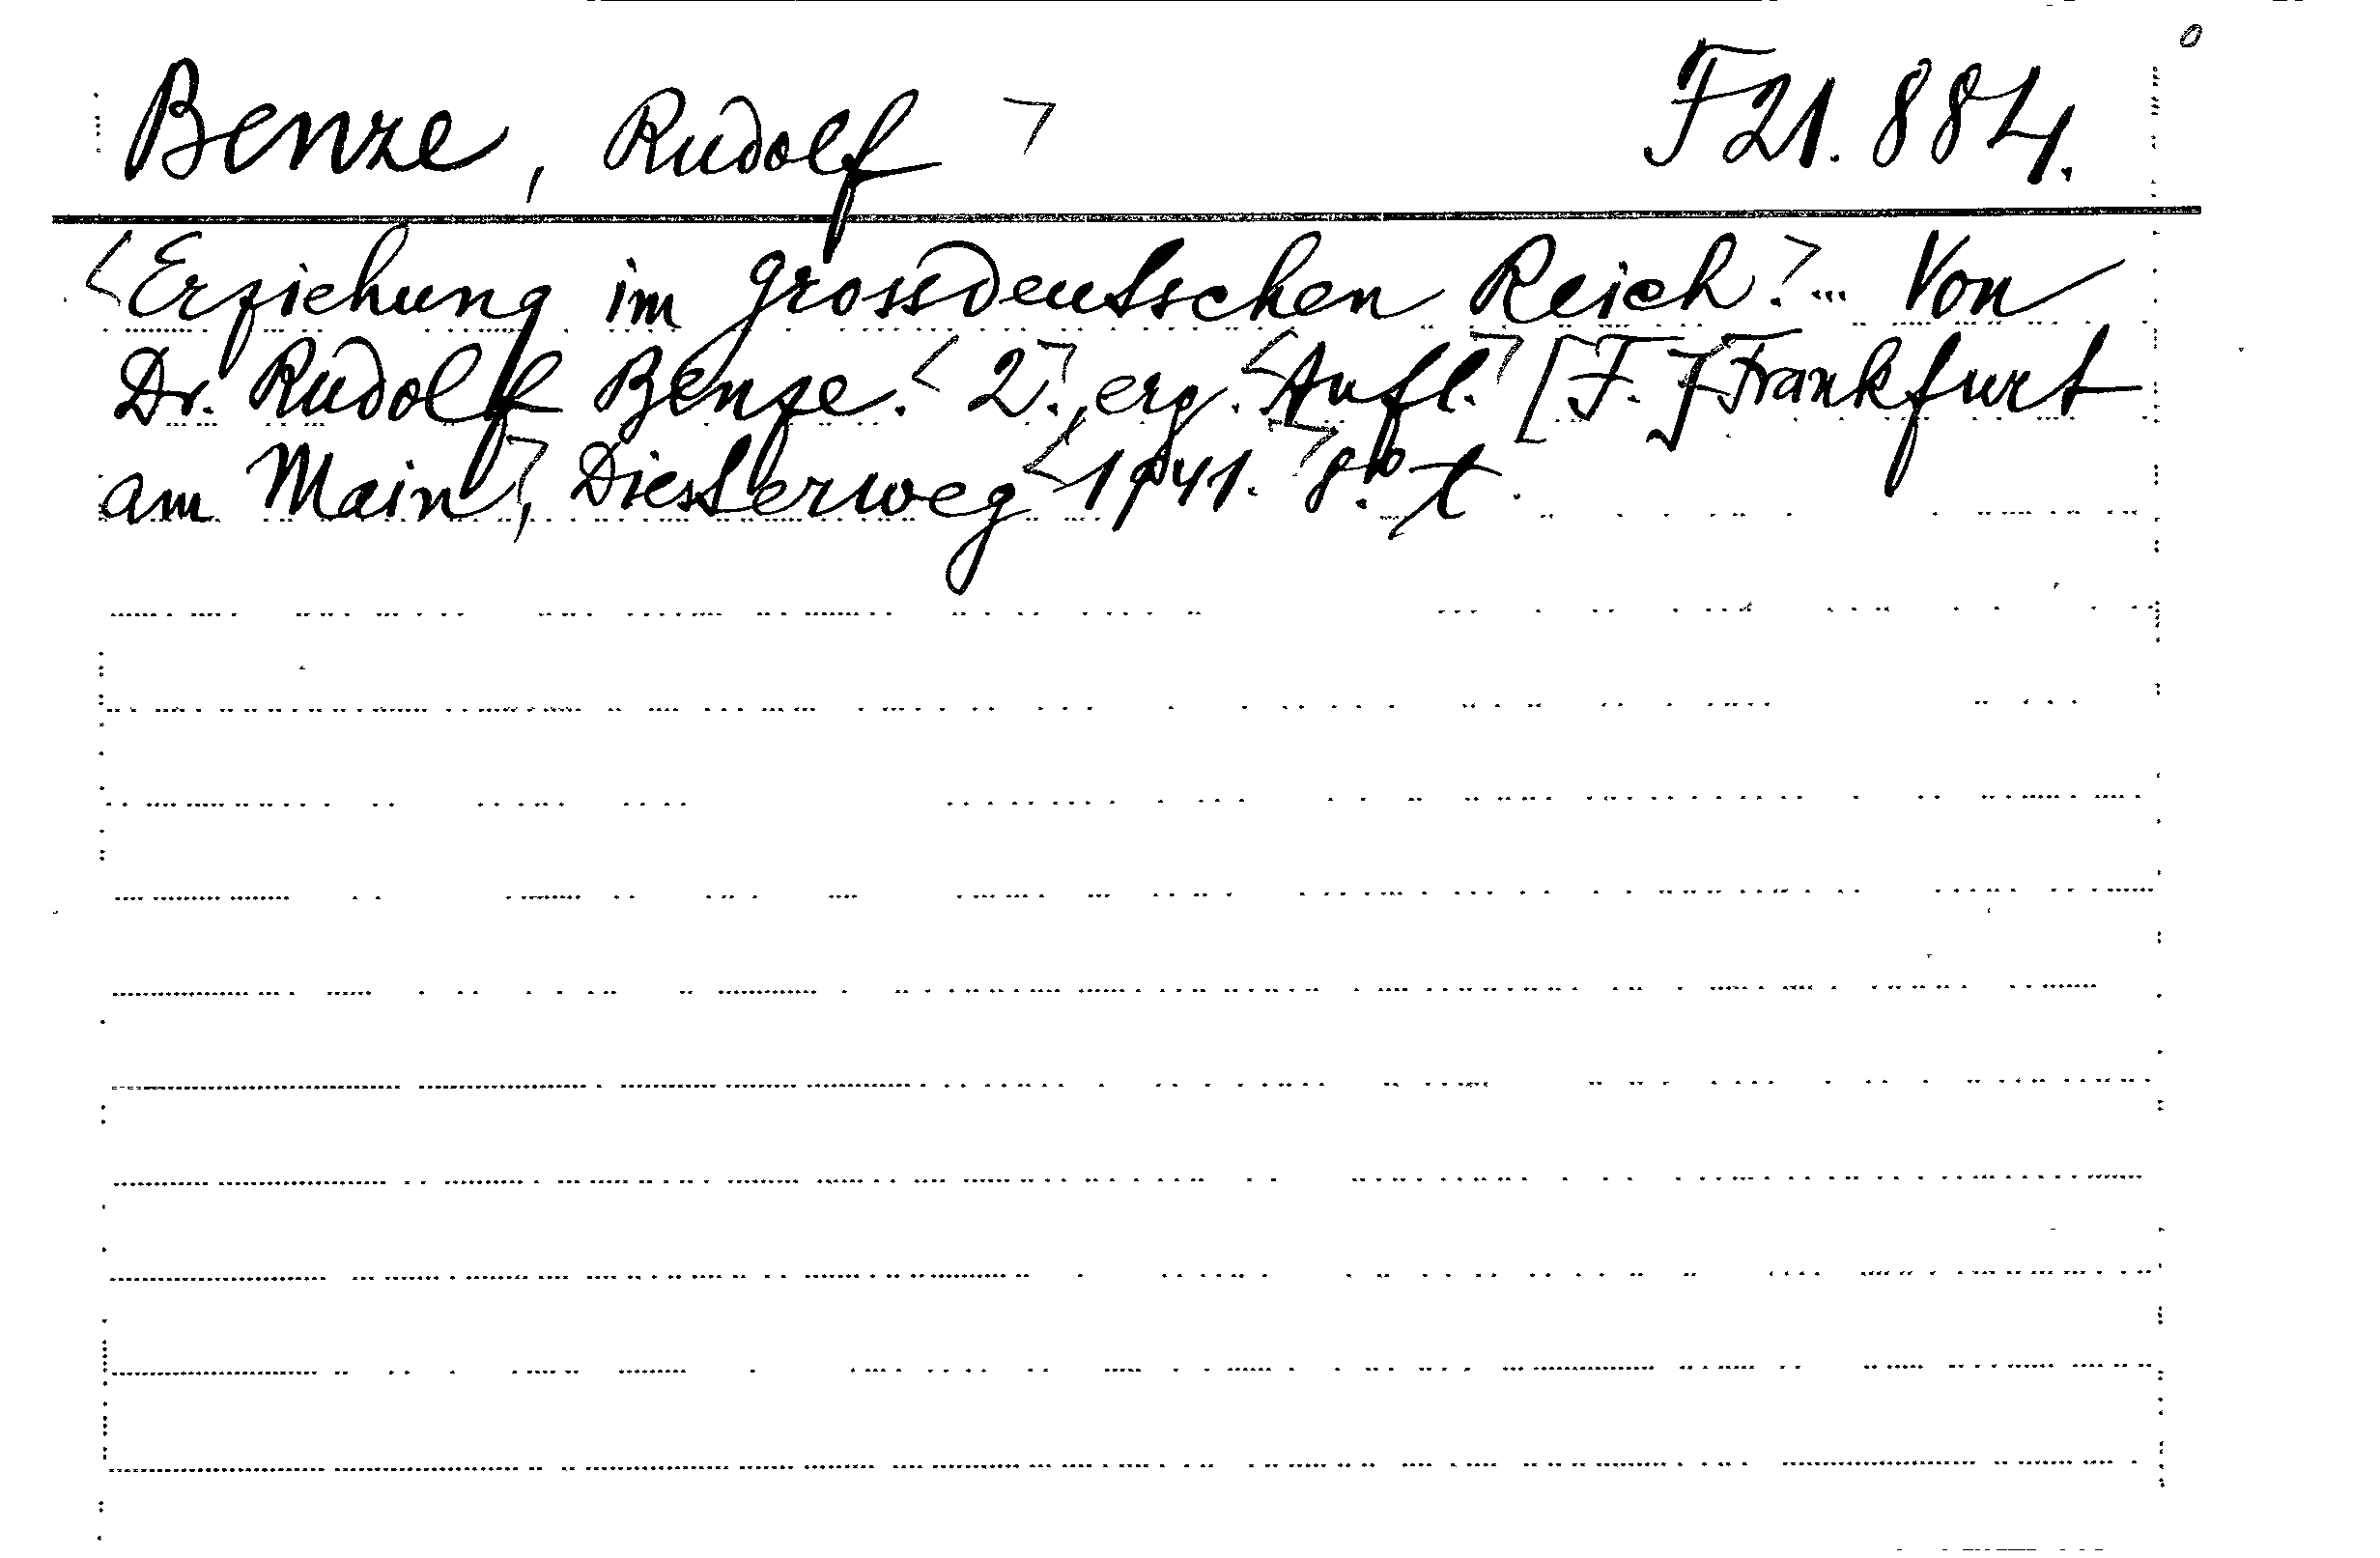 Benze, Rudolf F 21.884.
Erziehung im grossdeutschen Reich. ... Von
Dr. Rudolf Benze. 2., erg. Aufl. [F.] Frankfurt
am Main, Diesterweg 1941. 8° t.